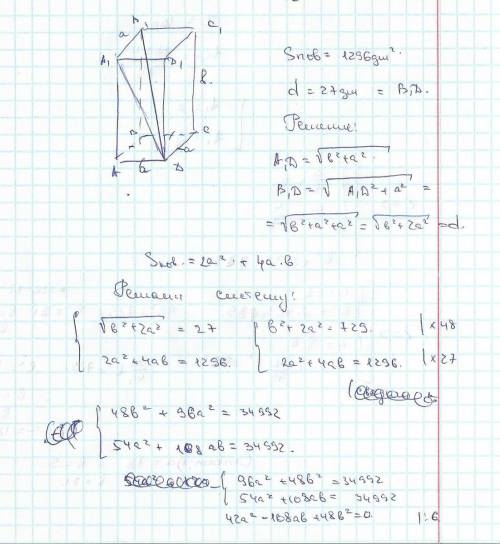 B₁ C₁
a
A₁ D₁
b
B C
a
A a D
Sпов = 1296дм².
d = 27дм = B₁D.
Решение:
A₁D = √b²+a².
B₁D = √A₁D²+a² =
= √b²+a²+a² = √b²+2a² = d.
Sпов. = 2a² + 4a·b
Решаем систему:
√b²+2a² = 27
2a² + 4ab = 1296.
b² + 2a² = 729. | × 48
2a² + 4ab = 1296. | × 27
48b² + 96a² = 34992
54a² + 108ab = 34992.
96a² + 48b² = 34992
54a² + 108ab = 34992
42a² - 108ab + 48b² = 0. | : 6